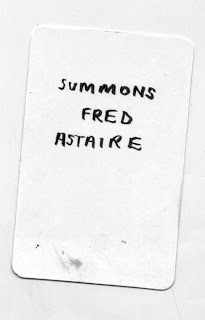 SUMMONS
FRED
ASTAIRE